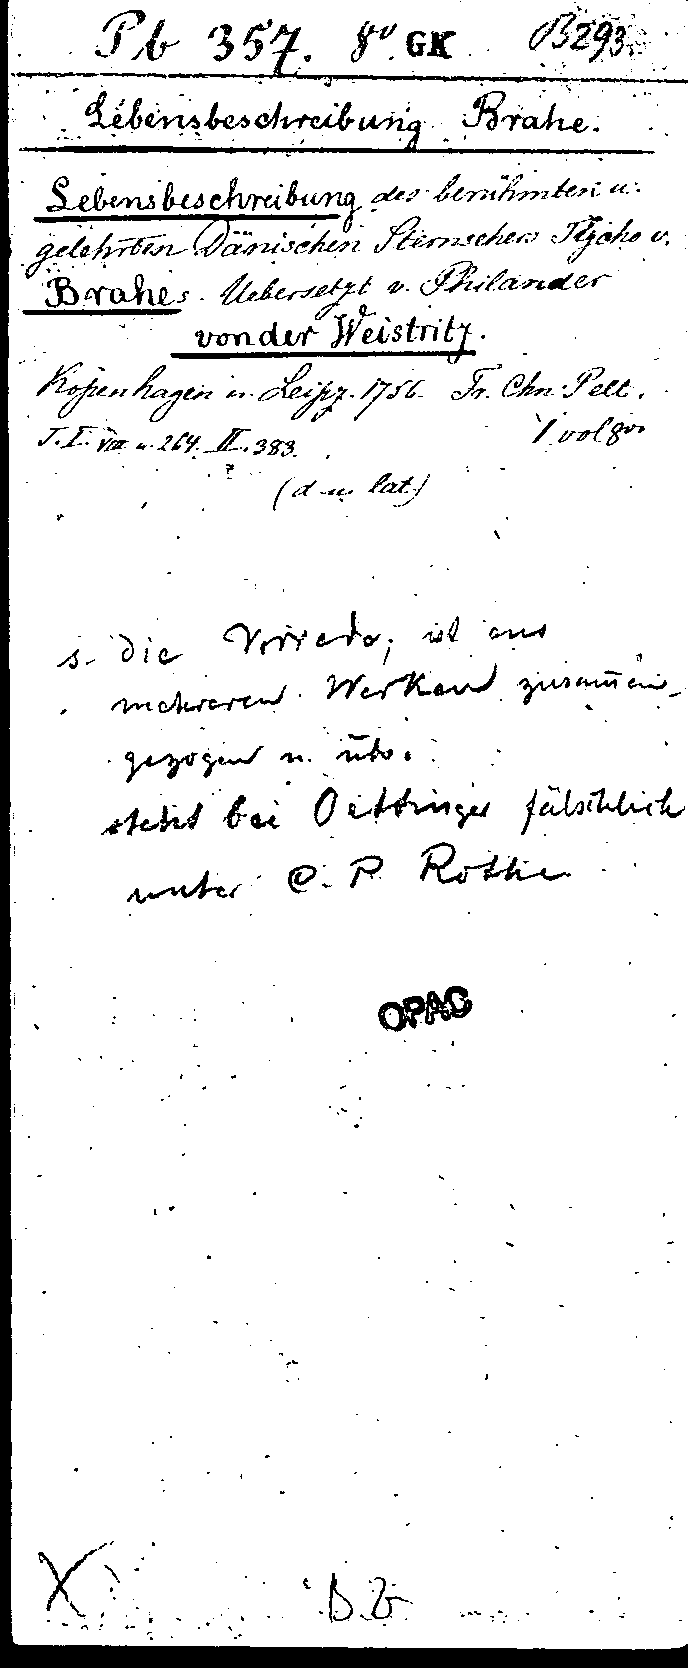 Pb 357. 8° GK B293.
Lebensbeschreibung Brahe.
Lebensbeschreibung des berühmten u.
gelehrten Dänischen Sternsehers Tycho v.
Brahes. Uebersetzt v. Philander
von der Weistritz.
Kopenhagen u. Leipz. 1756. Fr. Chn. Pelt.
T. I. VIII u. 264. II. 383. 1 vol 8vo
(d. u. lat.)
s. die Vorrede; ist aus
mehreren Werken zusam̅en-
gezogen u. übs.
steht bei Oettinger fälschlich
unter C. P. Rothe
OPAC
X